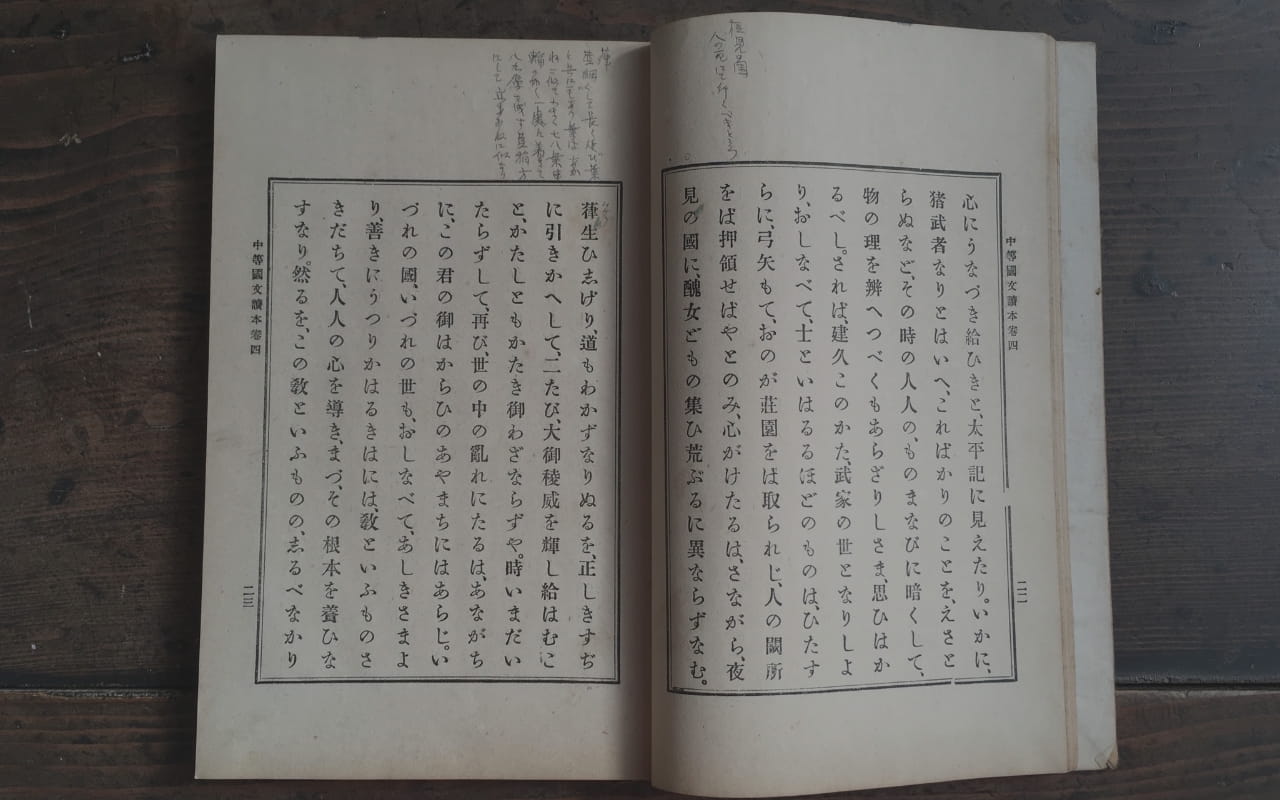 中等國文讀本卷四
二二
心にうなづき給ひきと、太平記に見えたり。いかに、
猪武者なりとはいへ、こればかりのことを、えさと
らぬなど、その時の人人の、ものまなびに暗くして、
物の理を辨へつべくもあらざりしさま、思ひはか
るべし。されば、建久このかた、武家の世となりしよ
り、おしなべて、士といはるるほどのものは、ひたす
らに、弓矢もて、おのが莊園をば取られじ、人の闕所
をば押領せばやとのみ、心がけたるは、さながら、夜
見の國に、醜女どもの集ひ荒ぶるに異ならずなむ。
葎生ひ志げり、道もわかずなりぬるを、正しきすぢ
に引きかへして、二たび、大御稜威を輝し給はむこ
と、かたしともかたき御わざならずや。時いまだい
たらずして、再び、世の中の亂れにたるは、あながち
に、この君の御はからひのあやまちにはあらじ。い
づれの國、いづれの世も、おしなべて、あしきさまよ
り、善きにうつりかはるきはには、敎といふものさ
きだちて、人人の心を導き、まづ、その根本を養ひな
すなり。然るを、この敎といふものの、志るべなかり
中等國文讀本卷四
二三